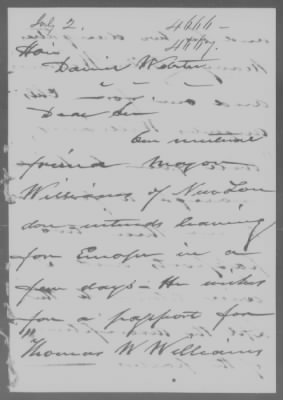 July 2. 4666 -
Hon
Daniel Webster
Dear Sir
Our mutual
friend Mayor
Williams of New Lon
don - intends leaving
for Europe in a
few days - He wishes
for a passport for
Thomas W Williams